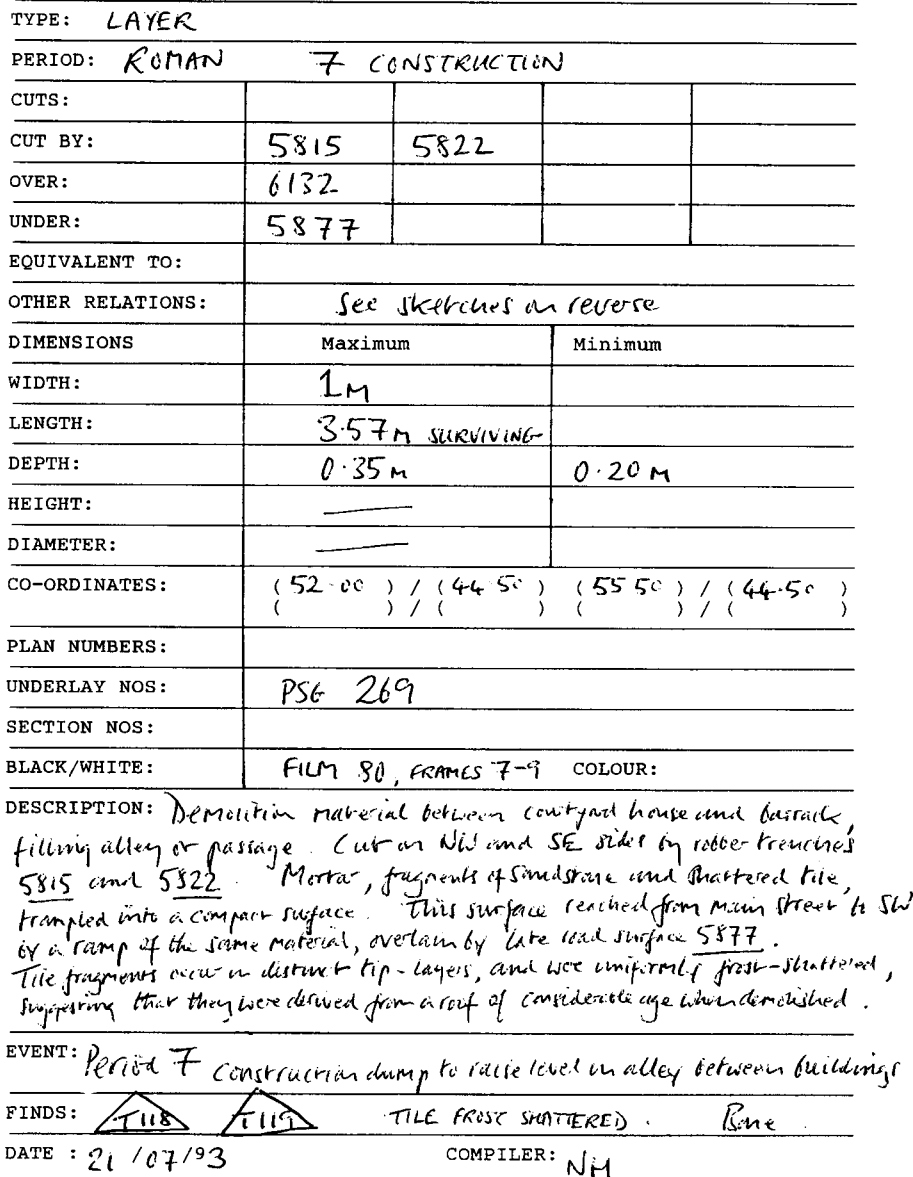 TYPE: LAYER
PERIOD: ROMAN 7 CONSTRUCTION
CUTS:
CUT BY: 5815 5822
OVER: 6132
UNDER: 5877
EQUIVALENT TO:
OTHER RELATIONS: See sketches on reverse
DIMENSIONS Maximum Minimum
WIDTH: 1M
LENGTH: 3.57M SURVIVING
DEPTH: 0.35M 0.20M
HEIGHT: —
DIAMETER: —
CO-ORDINATES: (52.00) / (44.50) (55.50) / (44.50)
( ) / ( ) ( ) / ( )
PLAN NUMBERS:
UNDERLAY NOS: PSG 269
SECTION NOS:
BLACK/WHITE: FILM 80, FRAMES 7-9 COLOUR:
DESCRIPTION: Demolition material between courtyard house and barrack,
filling alley or passage. Cut on NW and SE sides by robber trenches
5815 and 5822. Mortar, fragments of sandstone and shattered tile,
trampled into a compact surface. This surface reached from main street to SW
by a ramp of the same material, overlain by late road surface 5877.
Tile fragments occur in distinct tip-layers, and were uniformly frost-shattered,
suggesting that they were derived from a roof of considerable age when demolished.
EVENT: Period 7 construction dump to raise level in alley between buildings
FINDS: T118 T119 TILE FROST SHATTERED. Bone
DATE : 21 /07/93 COMPILER: NH